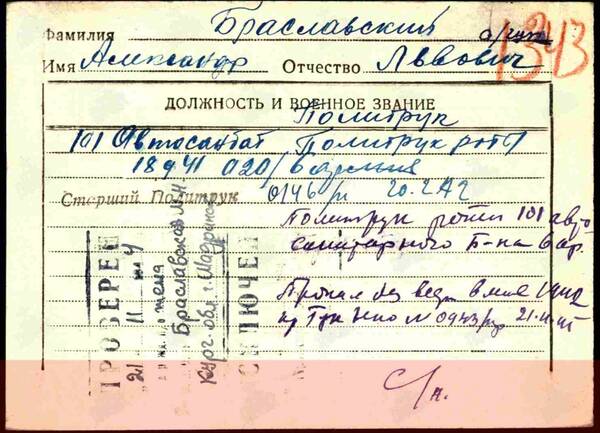 Фамилия Браславский
1343
Имя Александр Отчество Львович
ДОЛЖНОСТЬ И ВОЕННОЕ ЗВАНИЕ
Политрук
101 Автосанбат Политрук роты
18.9.41 020/6 армия
Старший Политрук 0146/п 20.2.42
Политрук роты 101 авто
санитарного б-на 6 ар.
Пропал без вест в мае 1942
пр ГУК НКО № 0943/пр 21-11-
ПРОВЕРЕН
21 11
жена
Браславская М.Н
Кург. обл. г. Шадринск
ИСКЛЮЧЕН